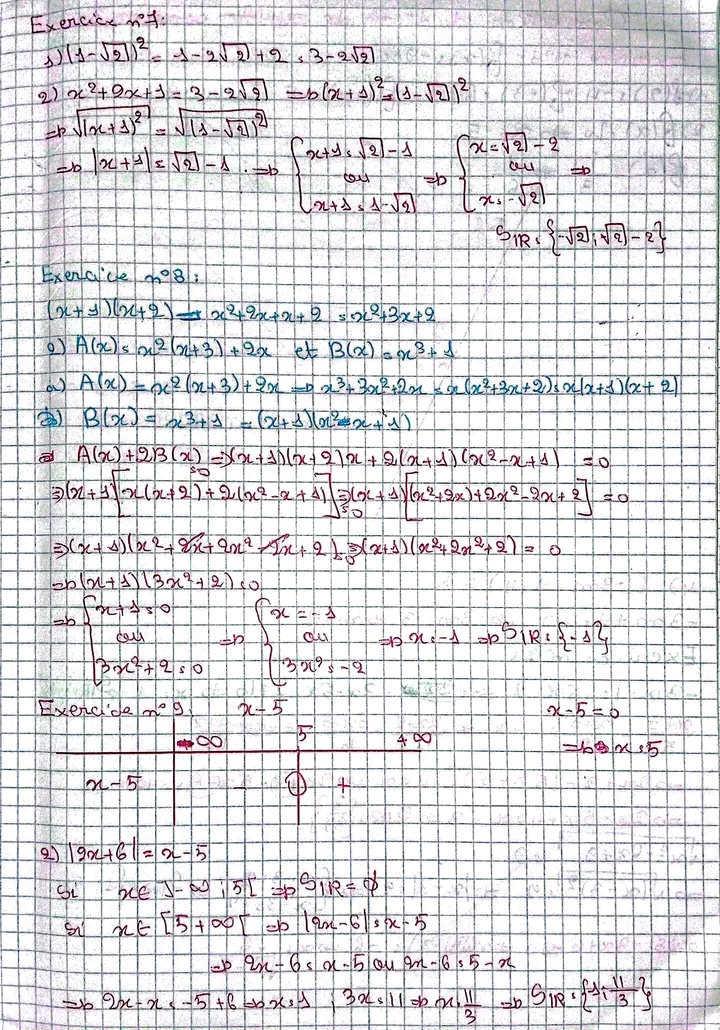 Exercice n°7:
1) (1-√2)² = 1-2√2+2 = 3-2√2
2) x²+2x+1 = 3-2√2 => (x+1)² = (1-√2)²
=> √(x+1)² = √(1-√2)²
=> |x+1| = √2-1 => { x+1 = √2-1 ou x+1 = 1-√2 => { x = √2-2 ou x = -√2 =>
S_IR = {-√2; √2-2}
Exercice n°8:
(x+1)(x+2) = x²+2x+x+2 = x²+3x+2
2) A(x) = x²(x+3)+2x et B(x) = x³+1
a) A(x) = x²(x+3)+2x => x³+3x²+2x = x(x²+3x+2) = x(x+1)(x+2)
B(x) = x³+1 = (x+1)(x²-x+1)
A(x)+2B(x) = 0 => (x+1)(x+2)x + 2(x+1)(x²-x+1) = 0
=> (x+1)[x(x+2)+2(x²-x+1)] = 0 => (x+1)[x²+2x)+2x²-2x+2] = 0
=> (x+1)(x²+2x+2x²-2x+2) = 0 => (x+1)(x²+2x²+2) = 0
=> (x+1)(3x²+2) = 0
=> { x+1 = 0 ou 3x²+2 = 0 => { x = -1 ou 3x² = -2 => x = -1 => S_IR = {-1}
Exercice n°9 x-5 x-5 = 0
-∞ 5 +∞ => x = 5
x-5 - 0 +
2) |2x+6| = x-5
Si x∈ ]-∞; 5[ => S_IR = ∅
Si x∈ [5 +∞[ => |2x-6| = x-5
=> 2x-6 = x-5 ou 2x-6 = 5-x
=> 2x-x = -5+6 => x = 1 ; 3x = 11 => x = 11/3 => S_IR = {1; 11/3}